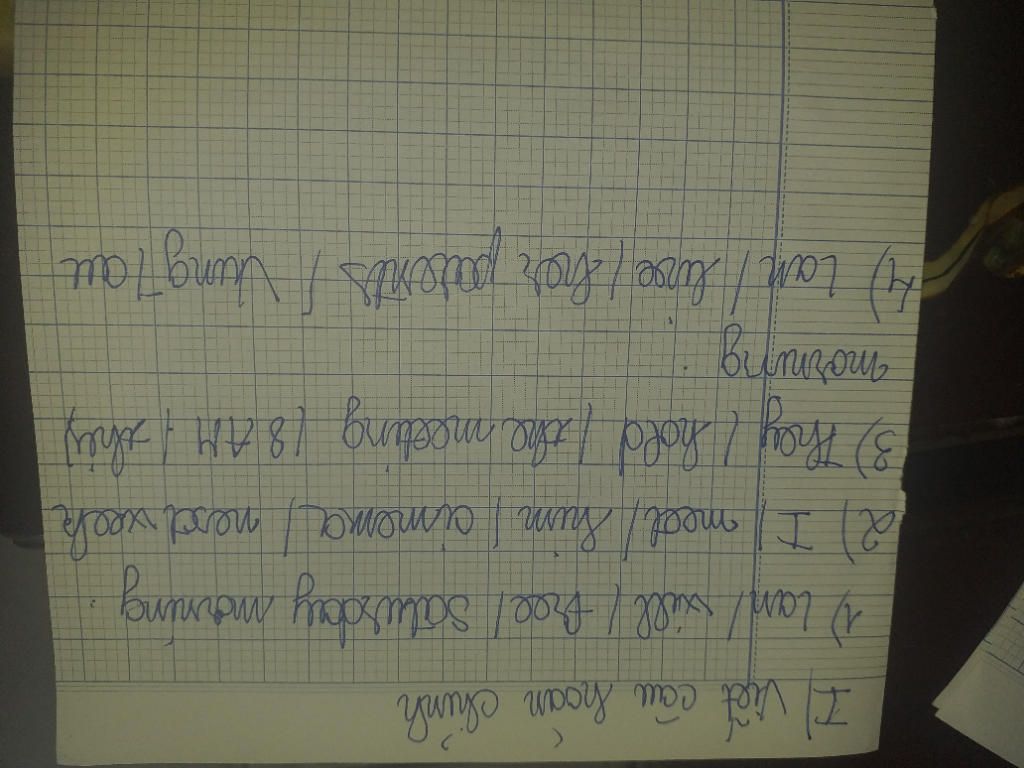 I) Viết câu hoàn chỉnh
1) Lan / will / free / Saturday morning .
2) I / meet / him / cinema / next week
3) They / hold / the meeting / 8 AM / this
morning .
4) Lan / live / her parents / Vung Tau